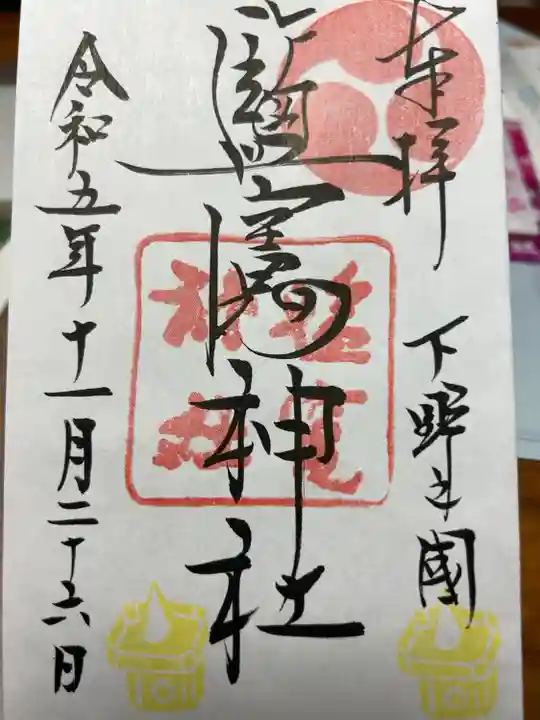 奉拝
下野之國
鹽竈神社
令和五年十一月二十六日